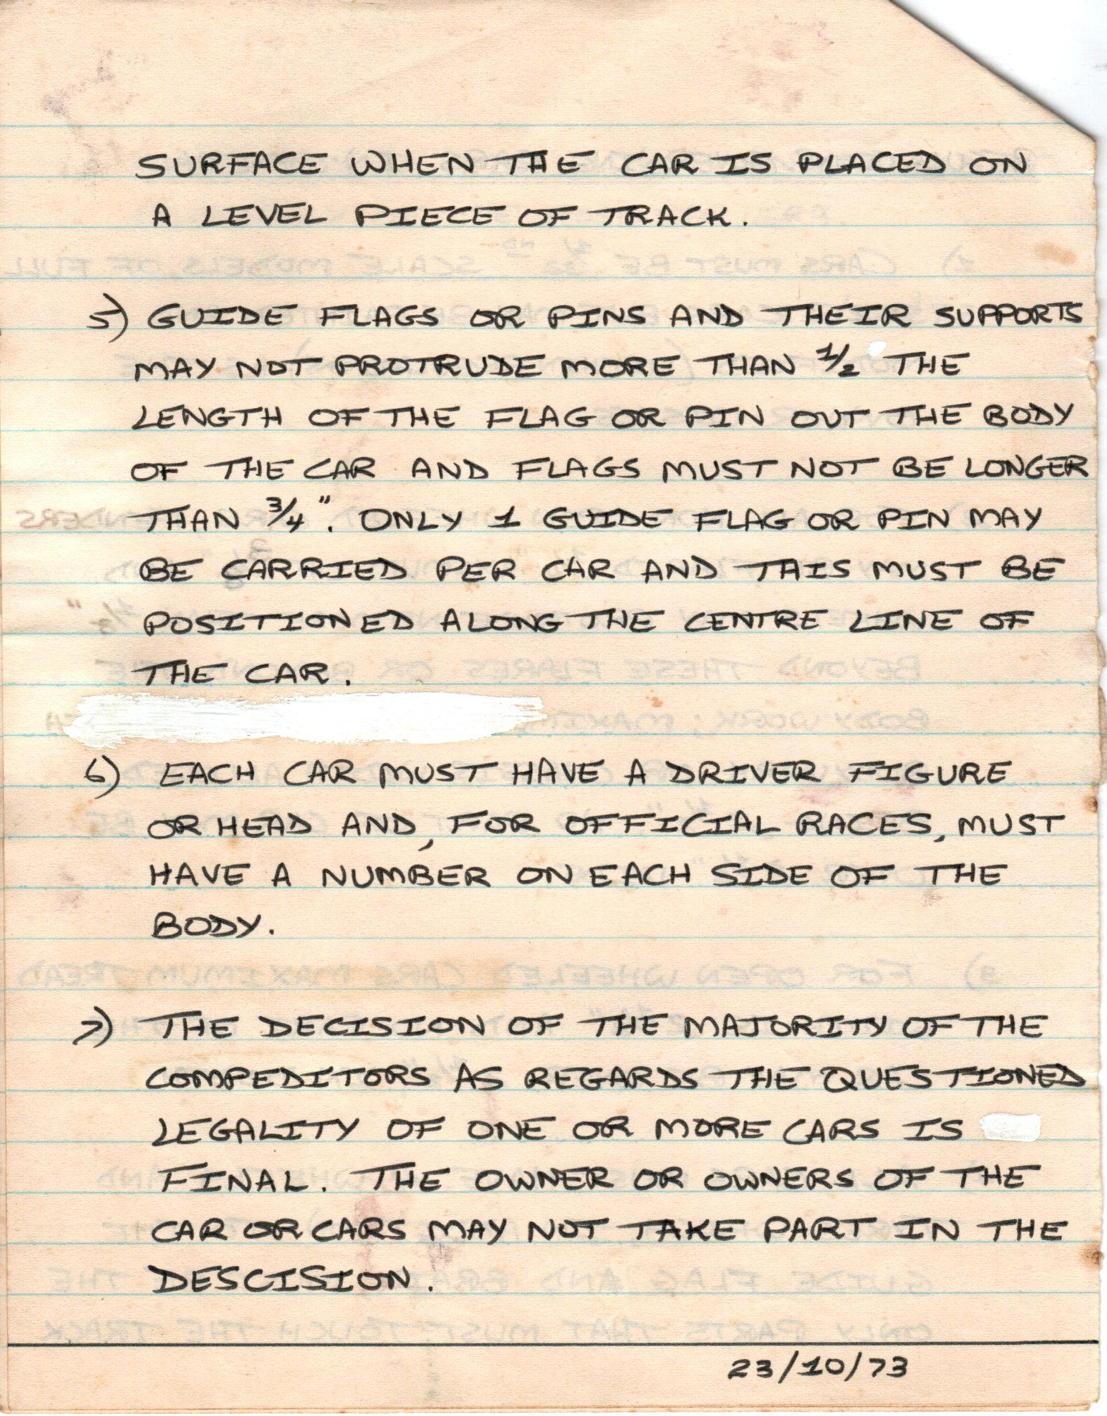 SURFACE WHEN THE CAR IS PLACED ON
A LEVEL PIECE OF TRACK.
5) GUIDE FLAGS OR PINS AND THEIR SUPPORTS
MAY NOT PROTRUDE MORE THAN 1/2 THE
LENGTH OF THE FLAG OR PIN OUT THE BODY
OF THE CAR AND FLAGS MUST NOT BE LONGER
THAN 3/4". ONLY 1 GUIDE FLAG OR PIN MAY
BE CARRIED PER CAR AND THIS MUST BE
POSITIONED ALONG THE CENTRE LINE OF
THE CAR.
6) EACH CAR MUST HAVE A DRIVER FIGURE
OR HEAD AND, FOR OFFICIAL RACES, MUST
HAVE A NUMBER ON EACH SIDE OF THE
BODY.
7) THE DECISION OF THE MAJORITY OF THE
COMPEDITORS AS REGARDS THE QUESTIONED
LEGALITY OF ONE OR MORE CARS IS
FINAL. THE OWNER OR OWNERS OF THE
CAR OR CARS MAY NOT TAKE PART IN THE
DESCISION.
23/10/73